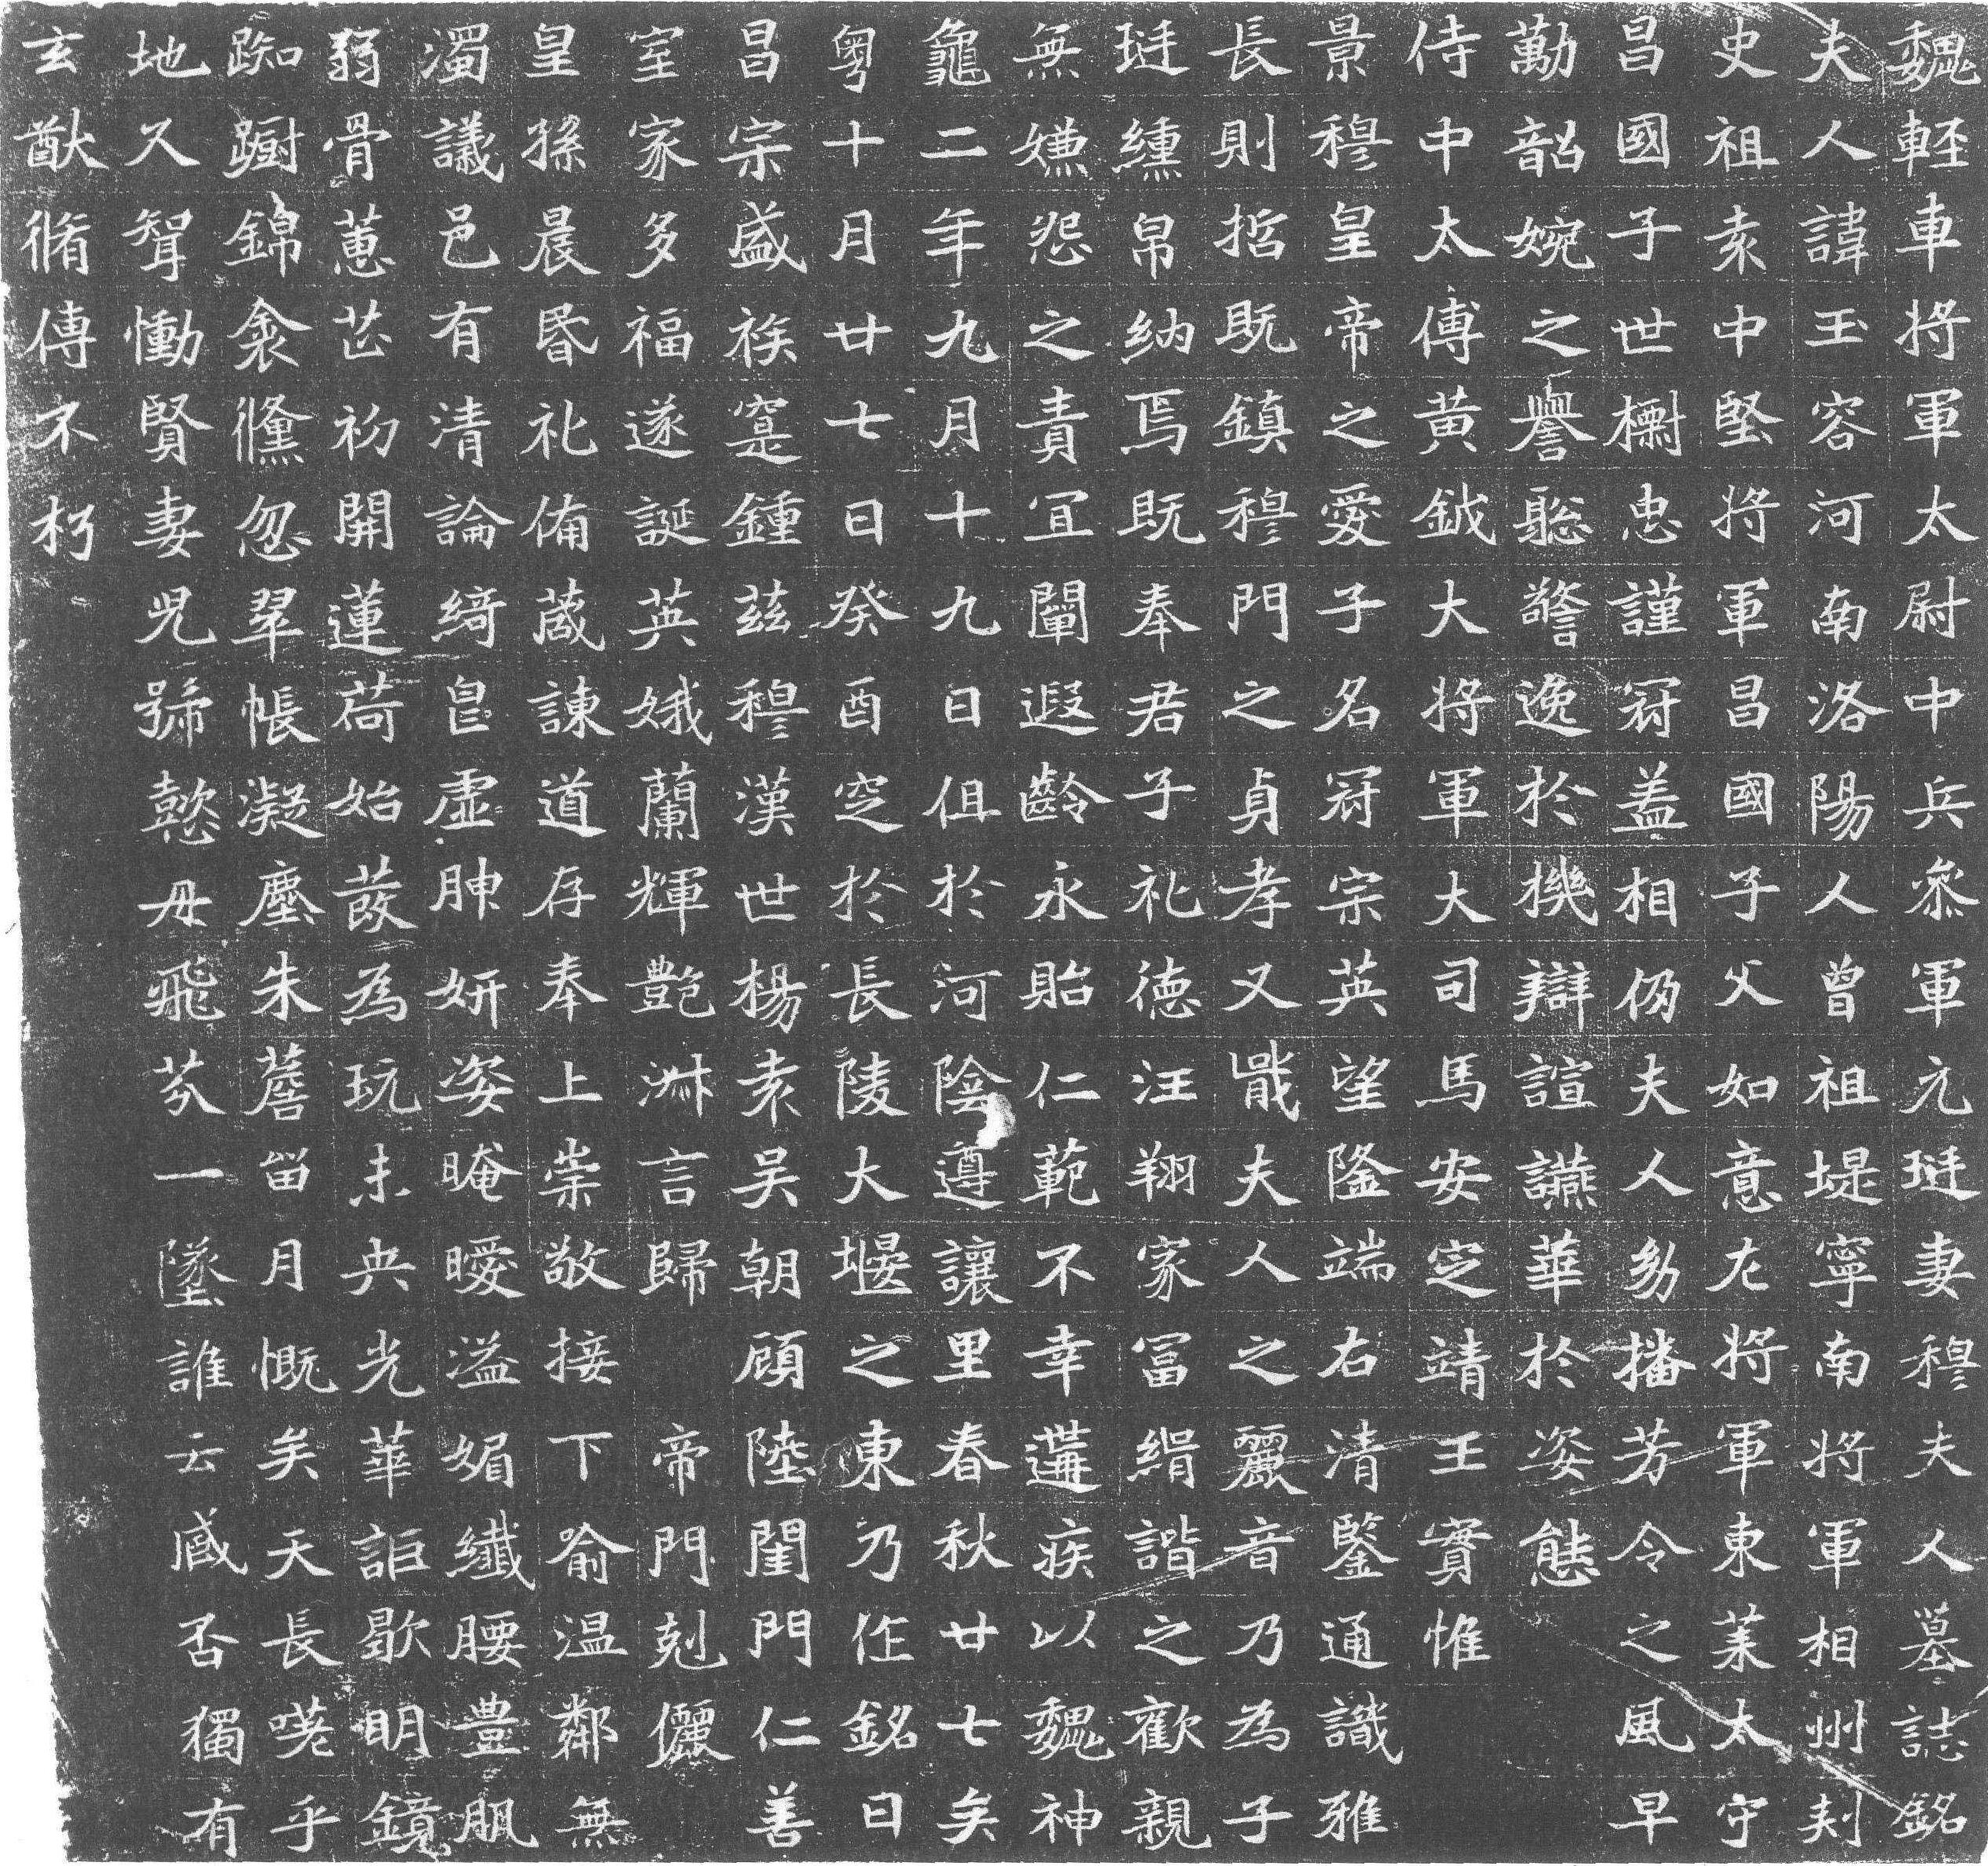 魏輕車將軍太尉中兵參軍元珽妻穆夫人墓誌銘
夫人諱玉容河南洛陽人曾祖堤寧南將軍相州刾
史祖袁中堅將軍昌國子父如意左將軍東萊太守
昌國子世樹忠謹冠蓋相仍夫人幼播芳令之風早
勱韶婉之譽聡警逸於機辯諠讌華於姿態
侍中太傅黃鉞大將軍大司馬安定靖王實惟
景穆皇帝之愛子名冠宗英望隆端右清鑒通識雅
長則哲既鎮穆門之貞孝又戢夫人之麗音乃為子
珽纁帛納焉既奉君子礼德汪翔家富緝諧之歡親
無嫌怨之責宜闡遐齡永貽仁範不幸遘疾以魏神
龜二年九月十九日徂於河陰遵讓里春秋廿七矣
粵十月廿七日癸酉窆於長陵大堰之東乃作銘曰
昌宗盛族寔鍾茲穆漢世楊袁吴朝顧陸閨門仁善
室家多福遂誕英娥蘭輝艷淋言歸 帝門剋儷
皇孫晨昬礼俻葴諫道存奉上崇敬接下喻温鄰無
濁議邑有清論綺皀虛胂妍姿晻曖溢媚纖腰豊肌
弱骨蕙芷初開蓮荷始蕟為玩未央光華詎歇明鏡
踟躕錦衾儵忽翠帳凝塵朱蓎留月慨矣天長嘆乎
地久智慟賢妻児號懿毋飛芬一墜誰云臧否獨有
玄猷脩傳不朽